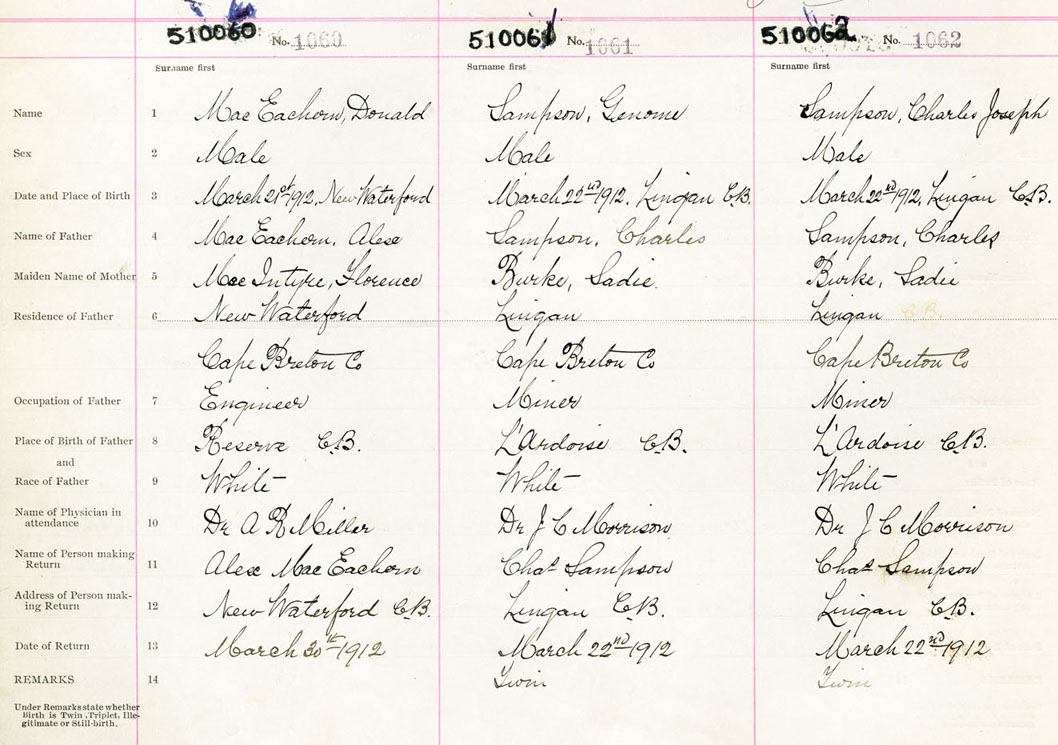 510060 No. 1060 510061 No. 1061 510062 No. 1062
Surname first Surname first Surname first
Name 1 Mac Eachern, Donald Sampson, Genome Sampson, Charles Joseph
Sex 2 Male Male Male
Date and Place of Birth 3 March 21st 1912, New Waterford March 22nd 1912. Lingan C.B. March 22nd 1912, Lingan C.B.
Name of Father 4 Mac Eachern, Alex Sampson, Charles Sampson, Charles
Maiden Name of Mother 5 Mac Intyre, Florence Burke, Sadie. Burke, Sadie
Residence of Father 6 New Waterford Lingan Lingan C.B.
Cape Breton Co Cape Breton Co Cape Breton Co
Occupation of Father 7 Engineer Miner Miner
Place of Birth of Father 8 Reserve C.B. L'Ardoise C.B. L'Ardoise C.B.
and
Race of Father 9 White White White
Name of Physician in
attendance 10 Dr A R Miller Dr J C Morrison Dr J C Morrison
Name of Person making
Return 11 Alex Mac Eachern Chas Sampson Chas Sampson
Address of Person mak-
ing Return 12 New Waterford C.B. Lingan C.B. Lingan C.B.
Date of Return 13 March 30th 1912 March 22nd 1912 March 22nd 1912
REMARKS 14 Twin Twin
Under Remarks state whether
Birth is Twin, Triplet, Ille-
gitimate or Still-birth.